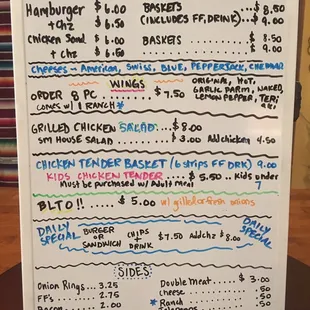 Hamburger $6.00 BASKETS $8.50
+ chz $6.50 (INCLUDES FF, DRINK) $9.00
Chicken Sand $6.00 BASKETS 8.50
+ chz 6.50 9.00
Cheeses - American, Swiss, Blue, Pepperjack, Cheddar
WINGS
ORDER 8 PC. $7.50 ORIGINAL, HOT,
COMES w/ 1 RANCH* GARLIC PARM, NAKED,
LEMON PEPPER, TERI
GRILLED CHICKEN SALAD...$8.00
SM HOUSE SALAD........$3.00 Add chicken 4.50
CHICKEN TENDER BASKET (6 strips FF DRK) 9.00
KIDS CHICKEN TENDER.....$5.50...Kids under
Must be purchased w/ Adult meal 7
BLTO!!.......$5.00 w/ grilled or fresh onions
DAILY SPECIAL BURGER OR SANDWICH CHIPS + DRINK $7.50 Add chz $8.00 DAILY SPECIAL
SIDES
Onion Rings...3.25 Double Meat.........$3.00
FF's..........2.75 Cheese.........50
Bacon.........2.00 *Ranch.........50
.50